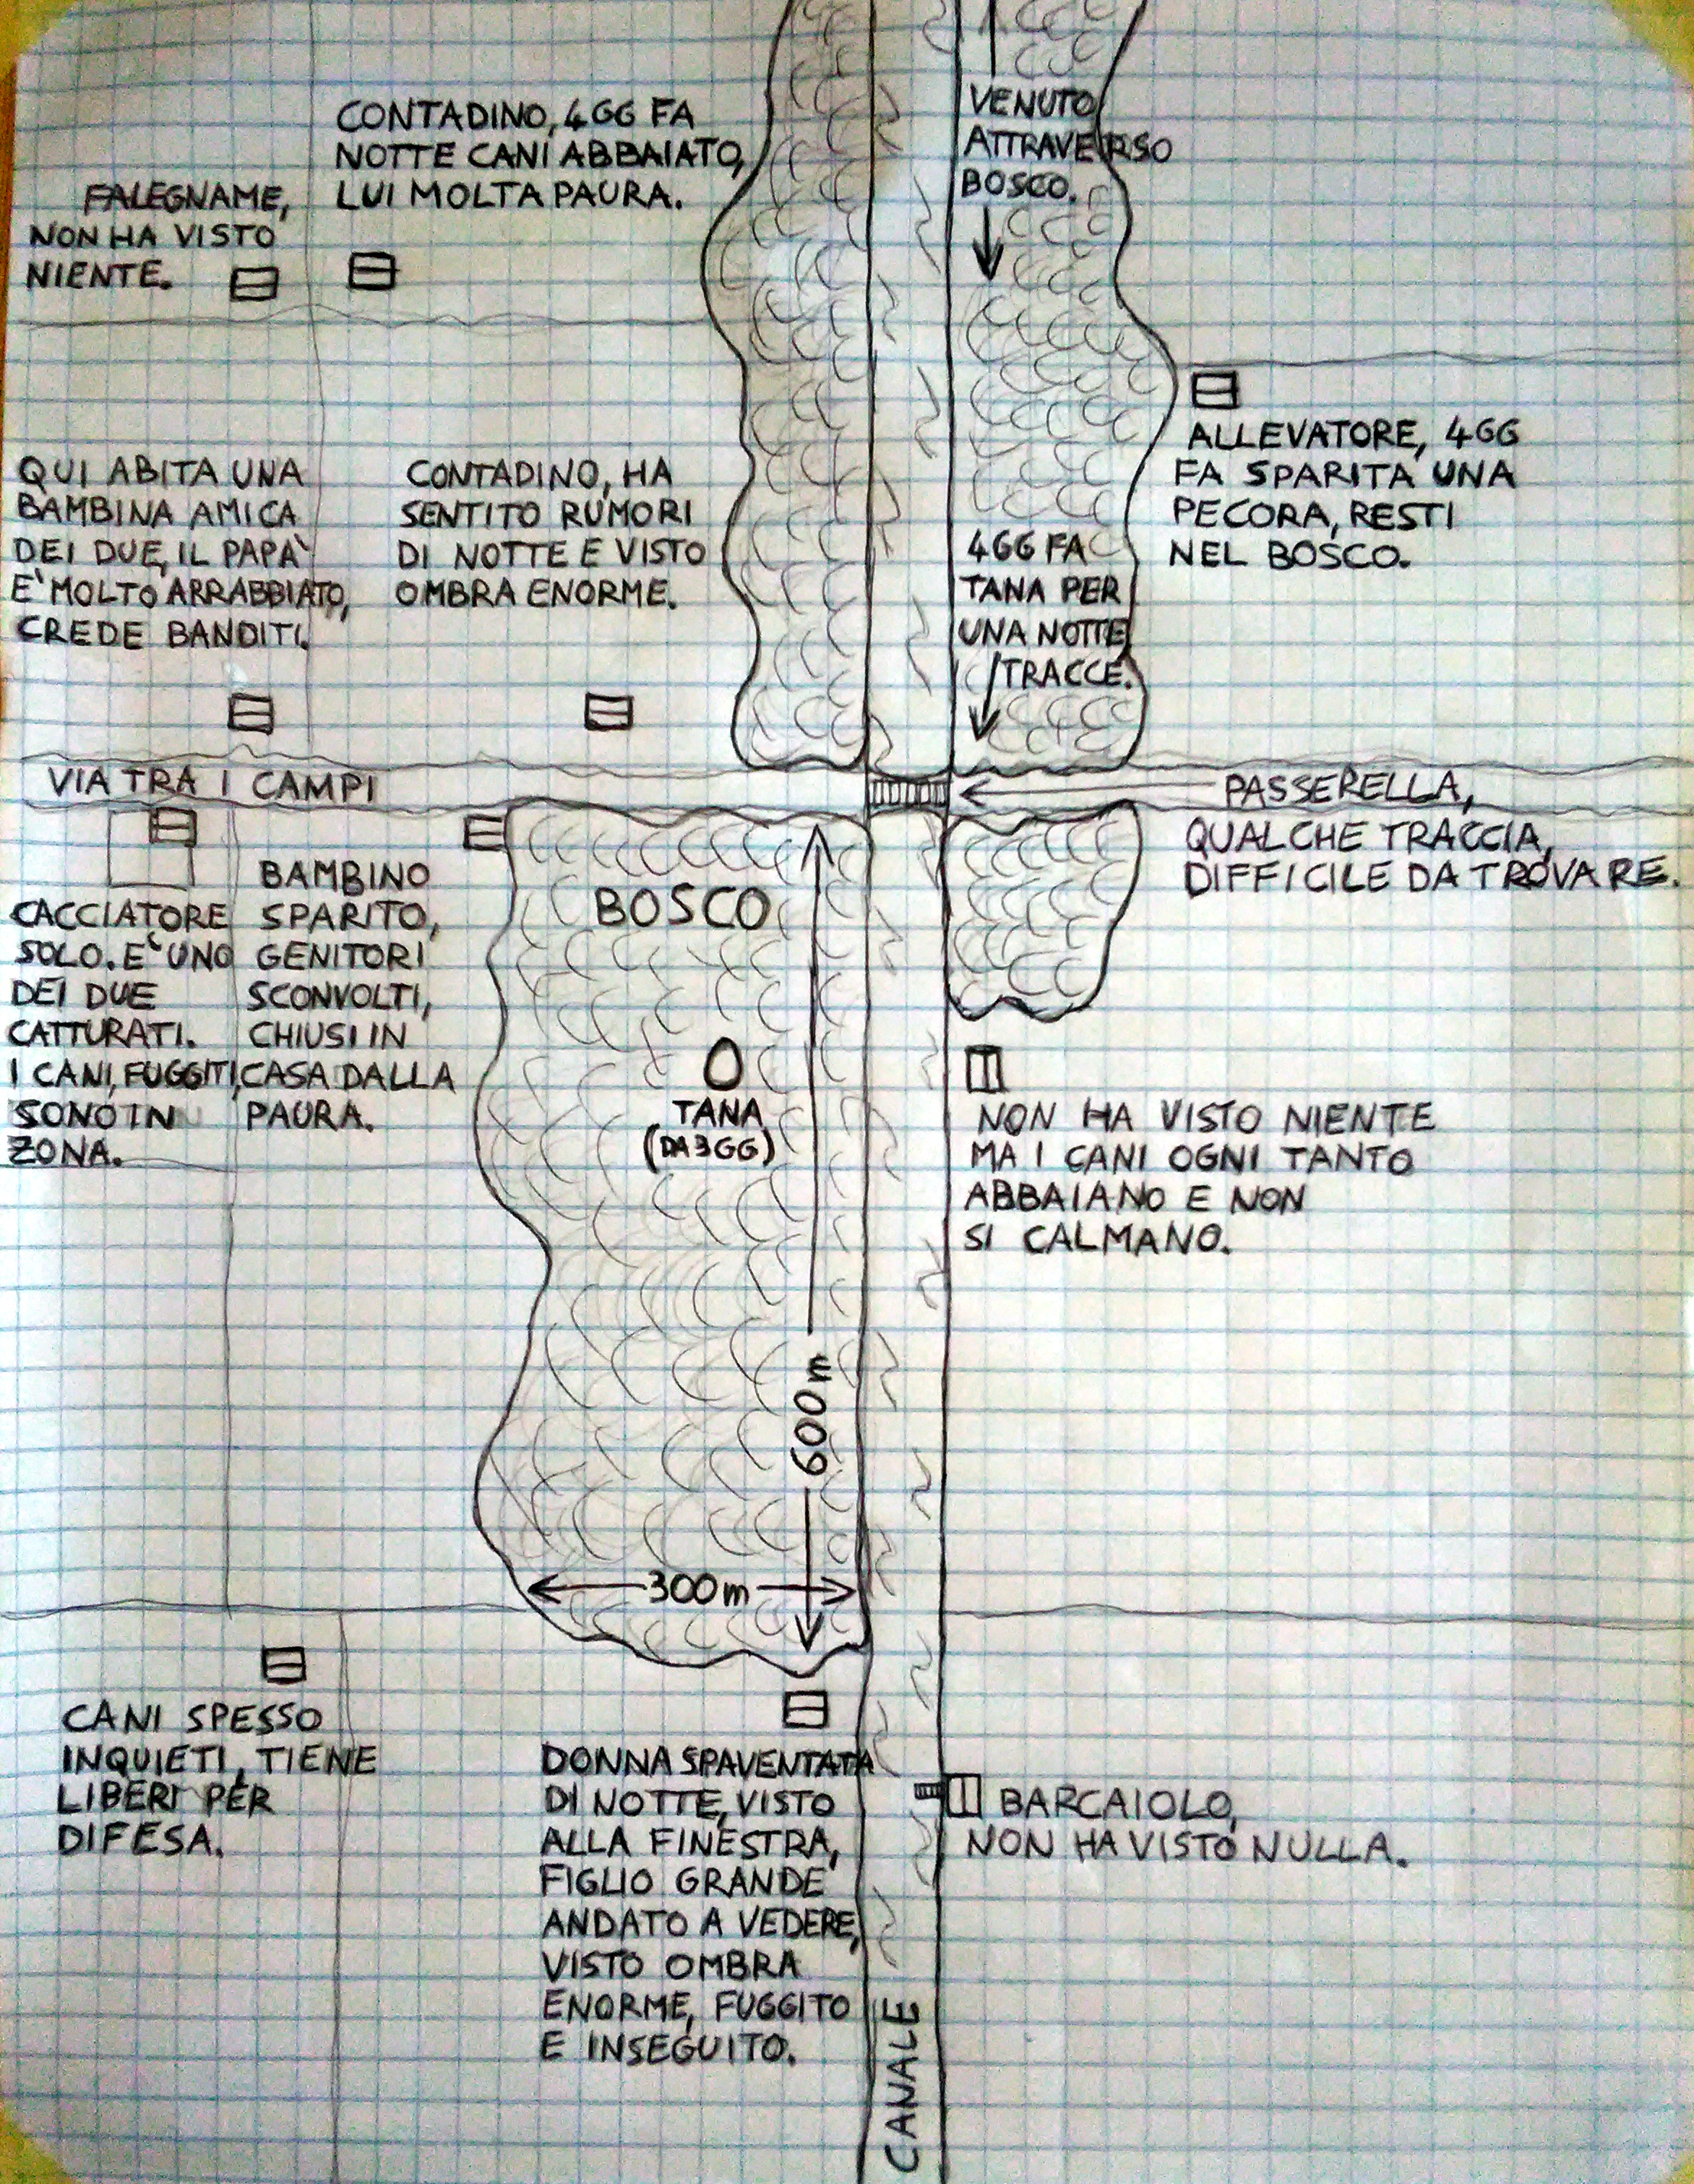 VENUTO
ATTRAVERSO
BOSCO.
CONTADINO, 4GG FA
NOTTE CANI ABBAIATO,
LUI MOLTA PAURA.
FALEGNAME,
NON HA VISTO
NIENTE.
ALLEVATORE, 4GG
FA SPARITA UNA
PECORA, RESTI
NEL BOSCO.
QUI ABITA UNA
BAMBINA AMICA
DEI DUE, IL PAPA'
E' MOLTO ARRABBIATO,
CREDE BANDITI.
CONTADINO, HA
SENTITO RUMORI
DI NOTTE E VISTO
OMBRA ENORME.
4GG FA
TANA PER
UNA NOTTE,
TRACCE.
VIA TRA I CAMPI
PASSERELLA,
QUALCHE TRACCIA,
DIFFICILE DA TROVARE.
CACCIATORE
SOLO. E' UNO
DEI DUE
CATTURATI.
I CANI, FUGGITI,
SONO IN
ZONA.
BAMBINO
SPARITO,
GENITORI
SCONVOLTI,
CHIUSI IN
CASA DALLA
PAURA.
BOSCO
TANA
(DA 3GG)
NON HA VISTO NIENTE
MA I CANI OGNI TANTO
ABBAIANO E NON
SI CALMANO.
600m
300m
CANI SPESSO
INQUIETI, TIENE
LIBERI PER
DIFESA.
DONNA SPAVENTATA
DI NOTTE, VISTO
ALLA FINESTRA,
FIGLIO GRANDE
ANDATO A VEDERE,
VISTO OMBRA
ENORME, FUGGITO
E INSEGUITO.
BARCAIOLO,
NON HA VISTO NULLA.
CANALE